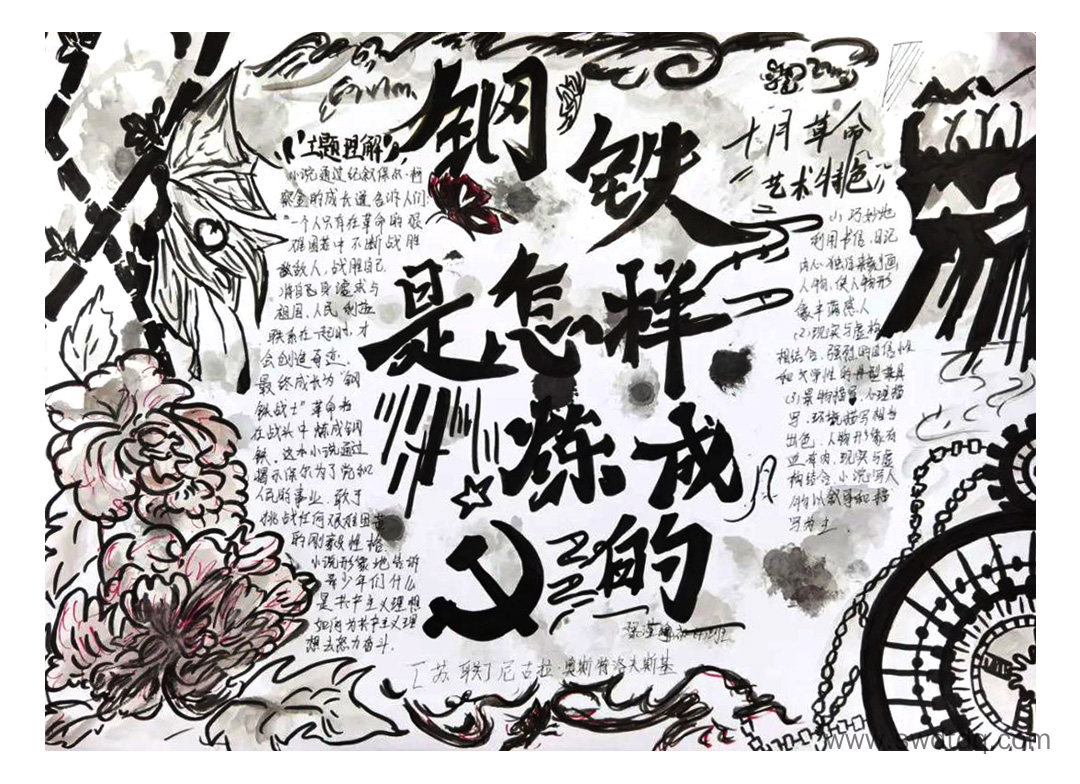 钢铁
是怎样
炼成
的
主题理解
小说通过记叙保尔·柯
察金的成长道告诉人们:
"一个人只有在革命的艰
难困苦中不断战胜
敌人,战胜自己
将自己追求与
祖国、人民利益
联系在一起时,才
会创造奇迹,
最终成长为"钢
铁战士"革命者
在战斗中炼成钢
铁,这本小说通过
揭示保尔为了党和
人民的事业,敢于
挑战任何艰难困苦
的刚毅性格
小说形象地告诉
青少年们什么
是共产主义理想
如何为共产主义理
想去努力奋斗.
十月革命
艺术特色
(1)巧妙地
利用书信、日记
内心独白来刻画
人物,使人物形
象丰满感人
(2)现实与虚构
相结合,强烈的自信性
和文学性的典型兼具
(3)景物描写、心理描
写、环境描写相当
出色,人物形象有
血有肉,现实与虚
构结合小说写人
物以叙事和描
写为主.
[苏联]尼古拉·奥斯特洛夫斯基